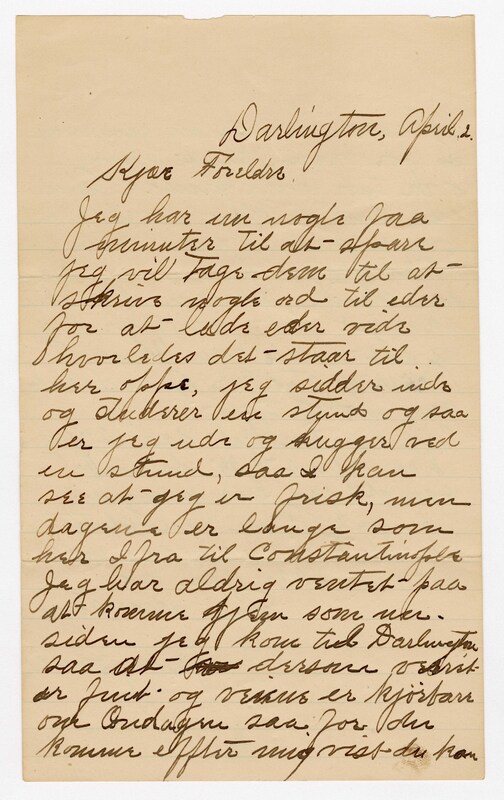 Darlington, April 2.
Kjære Foreldre.
Jeg har nu nogle faa
minuter til at spare
jeg vil tage dem til at
skrive nogle ord til eder
for at lade eder vide
hvorledes det staar til
her oppe, jeg sidder inde
og studerer en stund og saa
er jeg ude og hugger ved
en stund, saa I kan
see at jeg er frisk, men
dagene er lange som
her Ifra til Constantinople
Jeg har aldrig ventet paa
at komme hjem som nu.
siden jeg kom til Darlington
saa at dersom veiret
er fint og veiene er kjörbare
om Ondagen saa for du
komme effter mig vist du kan